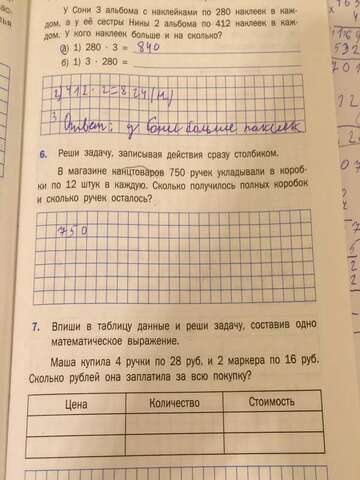 У Сони 3 альбома с наклейками по 280 наклеек в каж-
дом, а у её сестры Нины 2 альбома по 412 наклеек в каж-
дом. У кого наклеек больше и на сколько?
а) 1) 280 · 3 = 840
б) 1) 3 · 280 =
2) 412 · 2 = 824 (н)
3 Ответ: у Сони больше наклеек
6. Реши задачу, записывая действия сразу столбиком.
В магазине канцтоваров 750 ручек укладывали в короб-
ки по 12 штук в каждую. Сколько получилось полных коробок
и сколько ручек осталось?
750
7. Впиши в таблицу данные и реши задачу, составив одно
математическое выражение.
Маша купила 4 ручки по 28 руб. и 2 маркера по 16 руб.
Сколько рублей она заплатила за всю покупку?
Цена Количество Стоимость